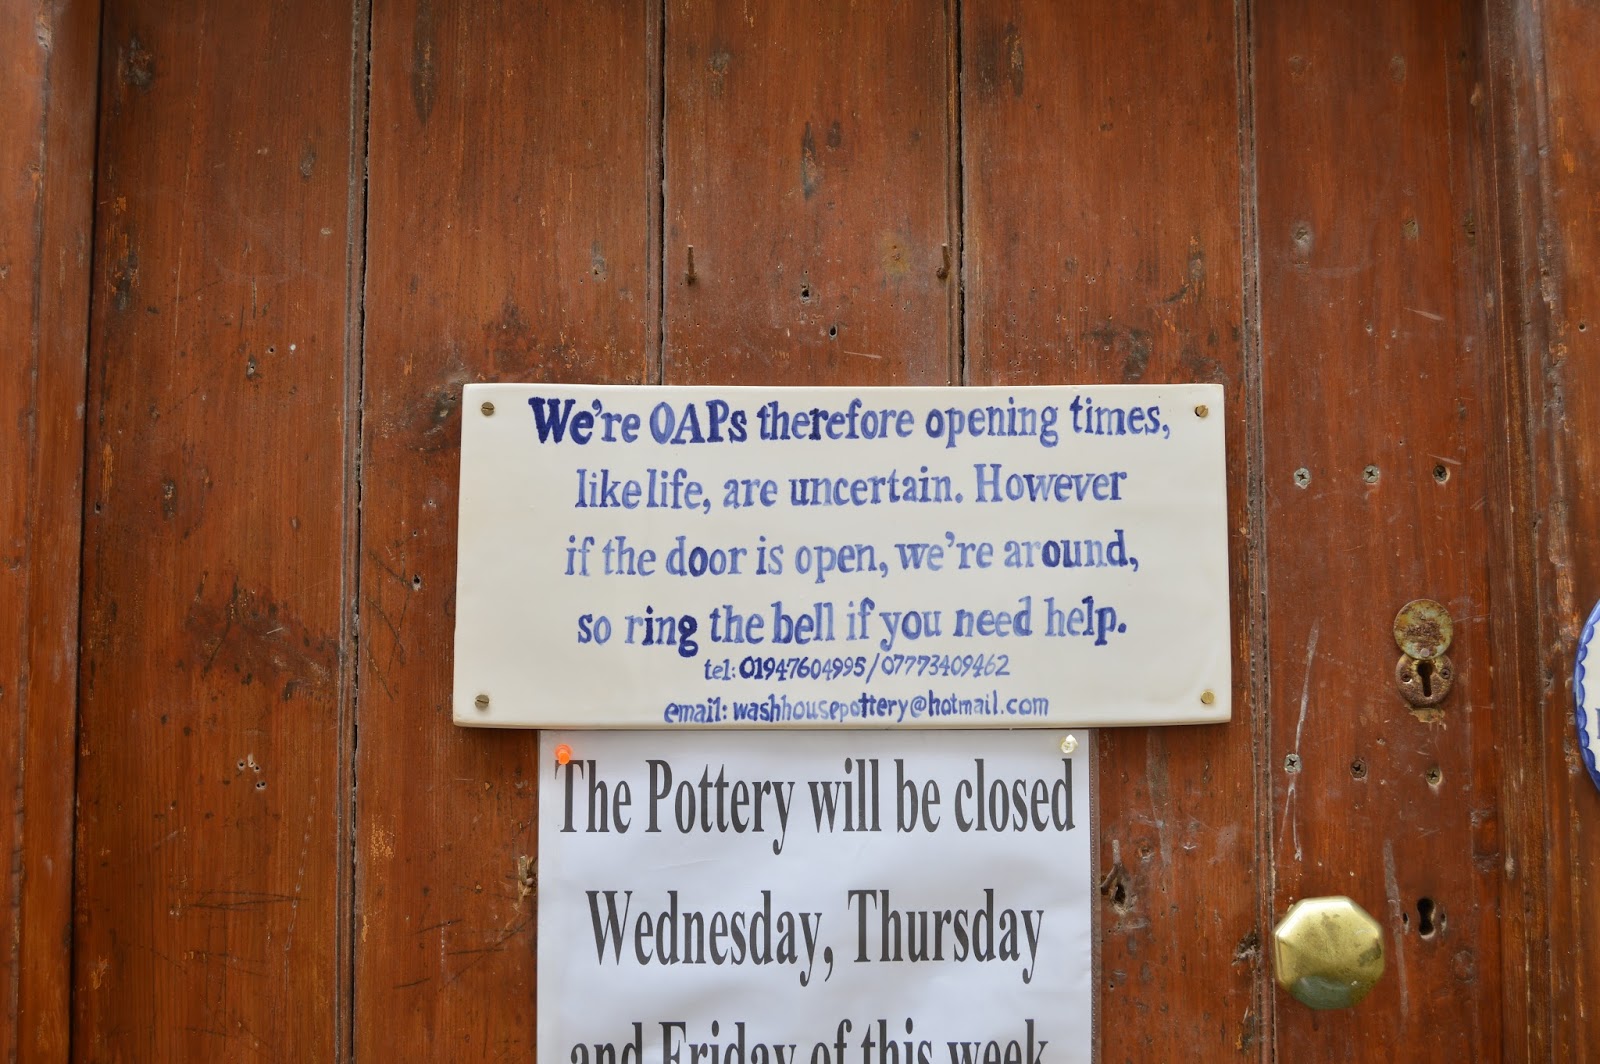 We're OAPs therefore opening times,
like life, are uncertain. However
if the door is open, we're around,
so ring the bell if you need help.
tel: 01947604995/07773409462
email: washhousepottery@hotmail.com
The Pottery will be closed
Wednesday, Thursday
and Friday of this week